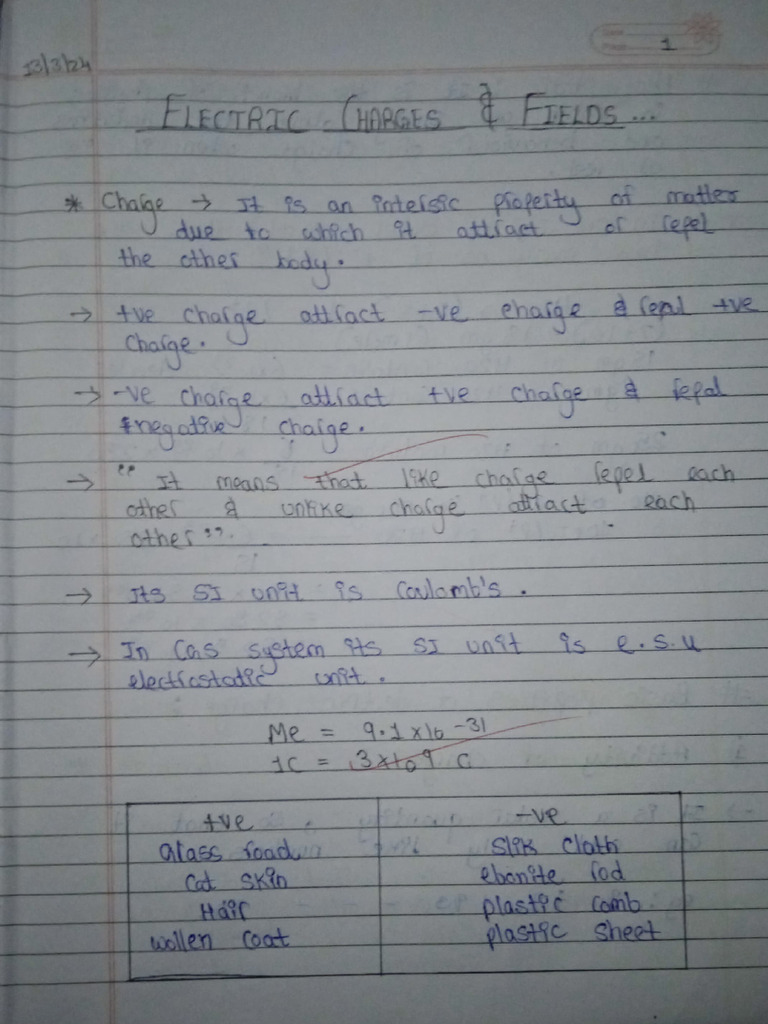 13/3/24
1
ELECTRIC CHARGES & FIELDS...
* Charge → It is an intersic property of matter
due to which it attract or repel
the other body.
→ +ve charge attract -ve charge & repel +ve
charge.
→ -ve charge attract +ve charge & repal
negative charge.
→ " It means that like charge repel each
other & unlike charge attract each
other".
→ Its SI unit is Coulomb's.
→ In CGS system its SI unit is e.s.u
electrostatic unit.
Me = 9.1 x 10 -31
1C = 3x10 9 C
+ve -ve
Glass road Slik cloth
Cat skin ebonite rod
Hair plastic comb
wollen coat plastic sheet